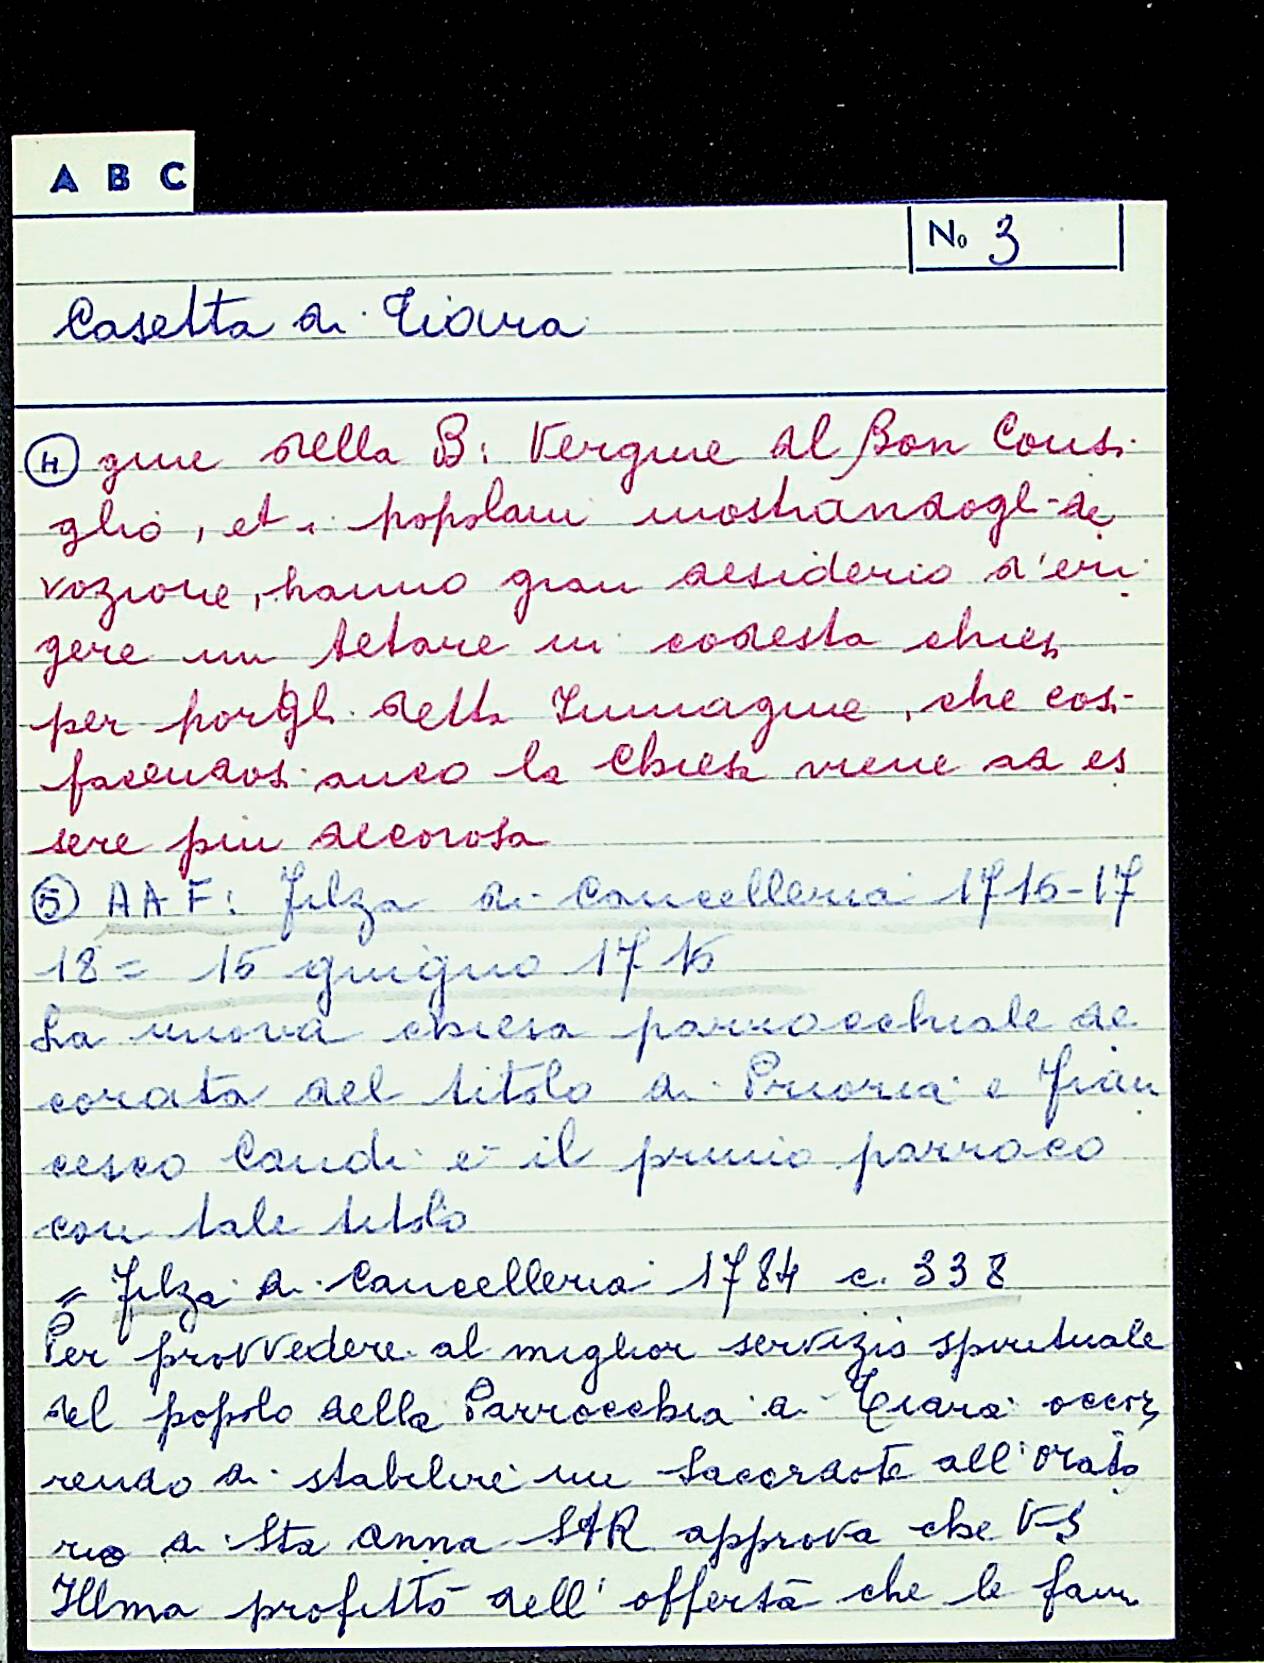 A B C
No 3
Casetta di Tiara
④ gine della B: Vergine del Bon Consi
glio, et i popolani mostrandogli de
vozione, hanno gran desiderio d'eri
gere un Altare in codesta chiesa
per porgli detta Immagine, che così
facendosi anco la Chiesa viene ad es
sere più decorosa
⑤ AAF: Filza di Cancelleria 1716-17
18 = 15 giugno 1716
La nuova chiesa parrocchiale de
corata del titolo di Prioria e Fran
cesco Candi è il primo parroco
con tale titolo
= Filza di Cancelleria 1784 c. 338
Per provvedere al miglior servizio spirituale
del popolo della Parrocchia di Tiara occor
rendo di stabilire un Sacerdote all'orato
rio di Sta Anna SAR approva che V-S
Illma profitti dell'offerta che le fam